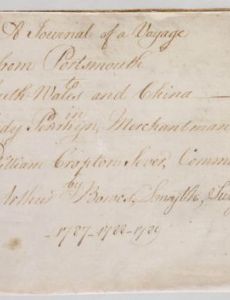 A Journal of a Voyage
from Portsmouth
to
uth Wales and China
in
dy Penrhyn, Merchantman
William Cropton Sever, Comm
by
Arthur Bowes, Smyth, Su
-1787-1788-1789